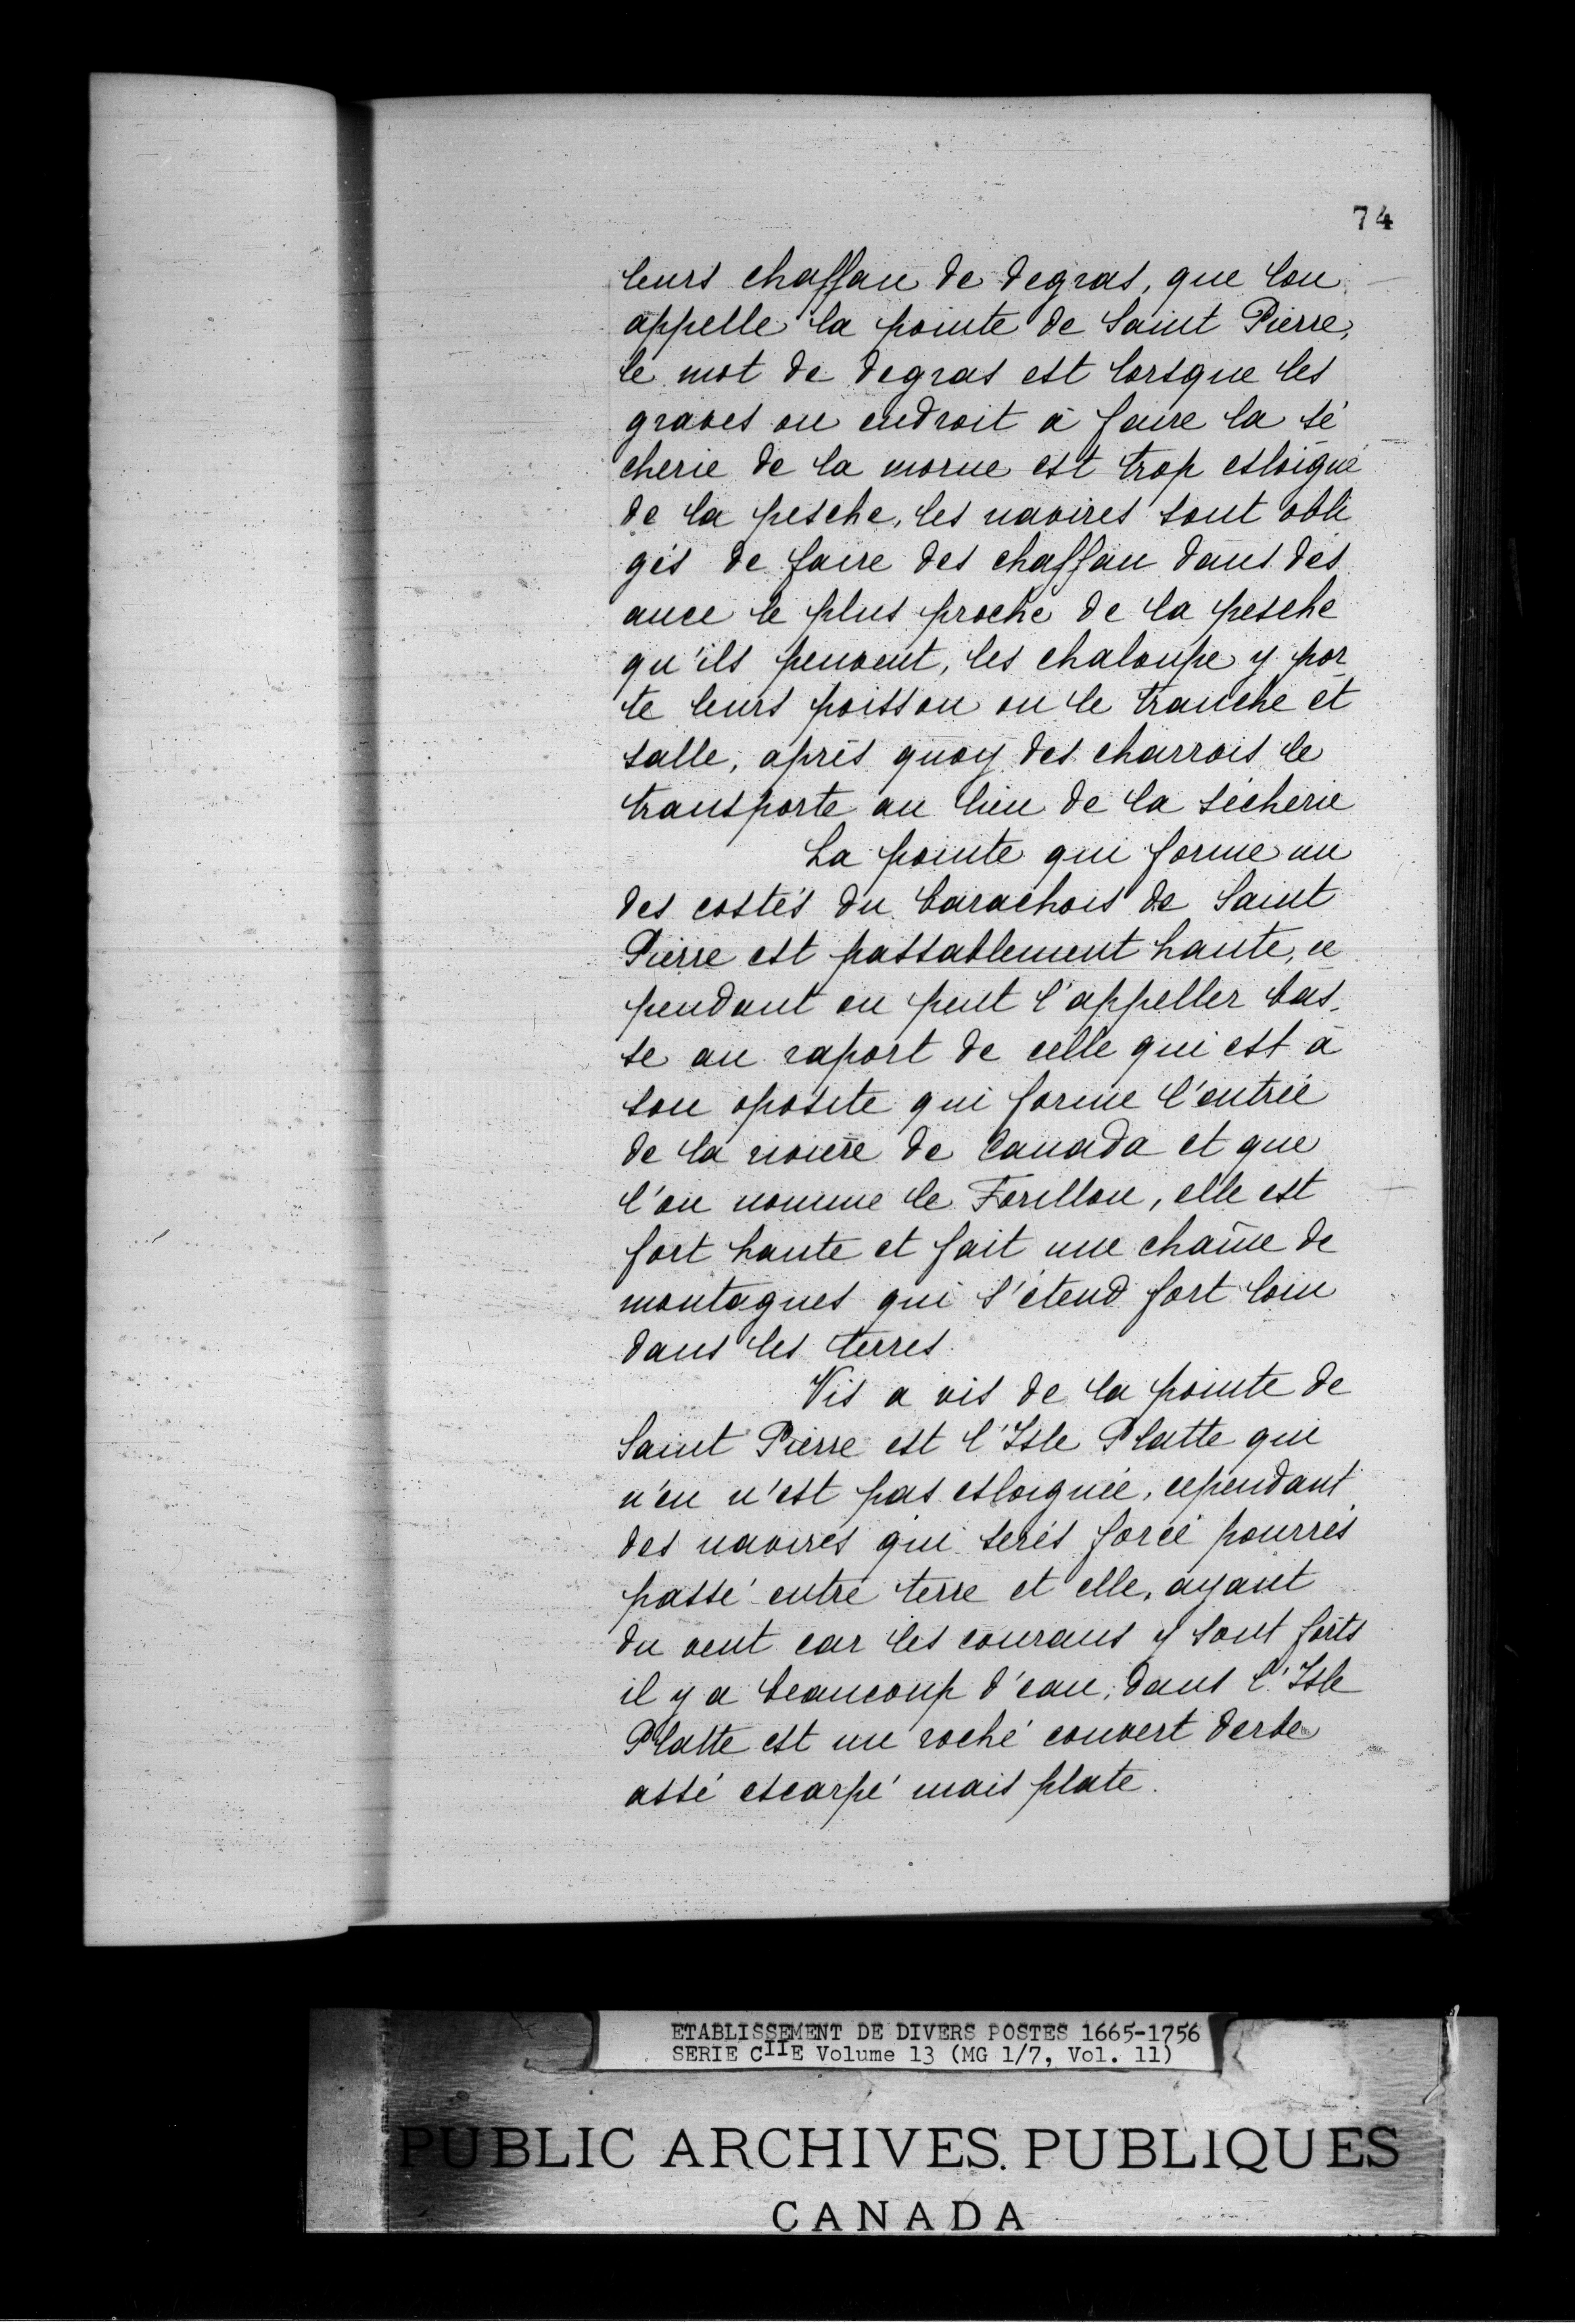 74
leurs chaffau de degras, que lon
appelle la pointe de Saint Pierre,
le mot de degras est lorsque les
graves ou endroit à faire la sé
cherie de la morue est trop esloigné
de la pesche, les navires sont obli
gés de faire des chaffau dans des
ance le plus proche de la pesche
qu'ils peuvent, les chaloupe y por
te leurs poisson on le tranche et
salle, après quoy des charrois le
transporte au lieu de la sécherie
La pointe qui forme un
des costés du barachois de Saint
Pierre est passablement haute, ce
pendant on peut l'appeller bas.
se au raport de celle qui est à
son oposite qui forme l'entrée
de la riviere de Canada et que
l'on nomme le Forillon, elle est
fort haute et fait une chaîne de
montagnes qui s'étend fort loin
dans les terres.
Vis a vis de la pointe de
Saint Pierre est l'Isle Platte qui
n'en n'est pas esloignée, cependant
des navires qui serés forcé pourrés
passé entre terre et elle, ayant
du vent car les courans y sont forts
il y a beaucoup d'eau, dans l'Isle
Platte est un roché couvert derbe
assé escarpé mais plate.
ETABLISSEMENT DE DIVERS POSTES 1665-1756
SERIE CIIE Volume 13 (MG 1/7, Vol. 11)
PUBLIC ARCHIVES. PUBLIQUES
CANADA